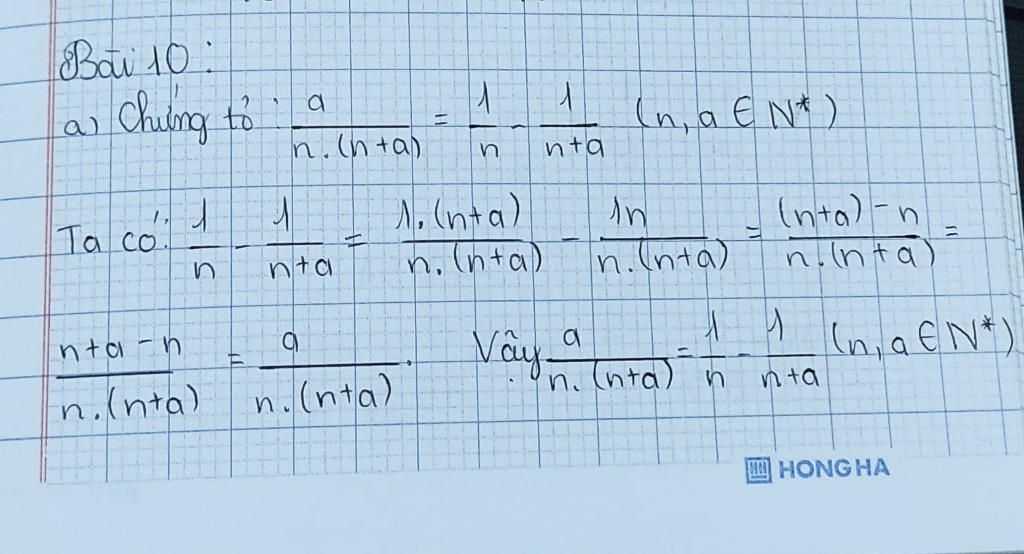 Bài 10:
a) Chứng tỏ: a/n.(n+a) = 1/n - 1/n+a (n, a ∈ N*)
Ta có: 1/n - 1/n+a = 1.(n+a)/n.(n+a) - 1n/n.(n+a) = (n+a)-n/n.(n+a) =
n+a-n/n.(n+a) = a/n.(n+a). Vậy a/n.(n+a) = 1/n - 1/n+a (n, a ∈ N*)
HONG HA